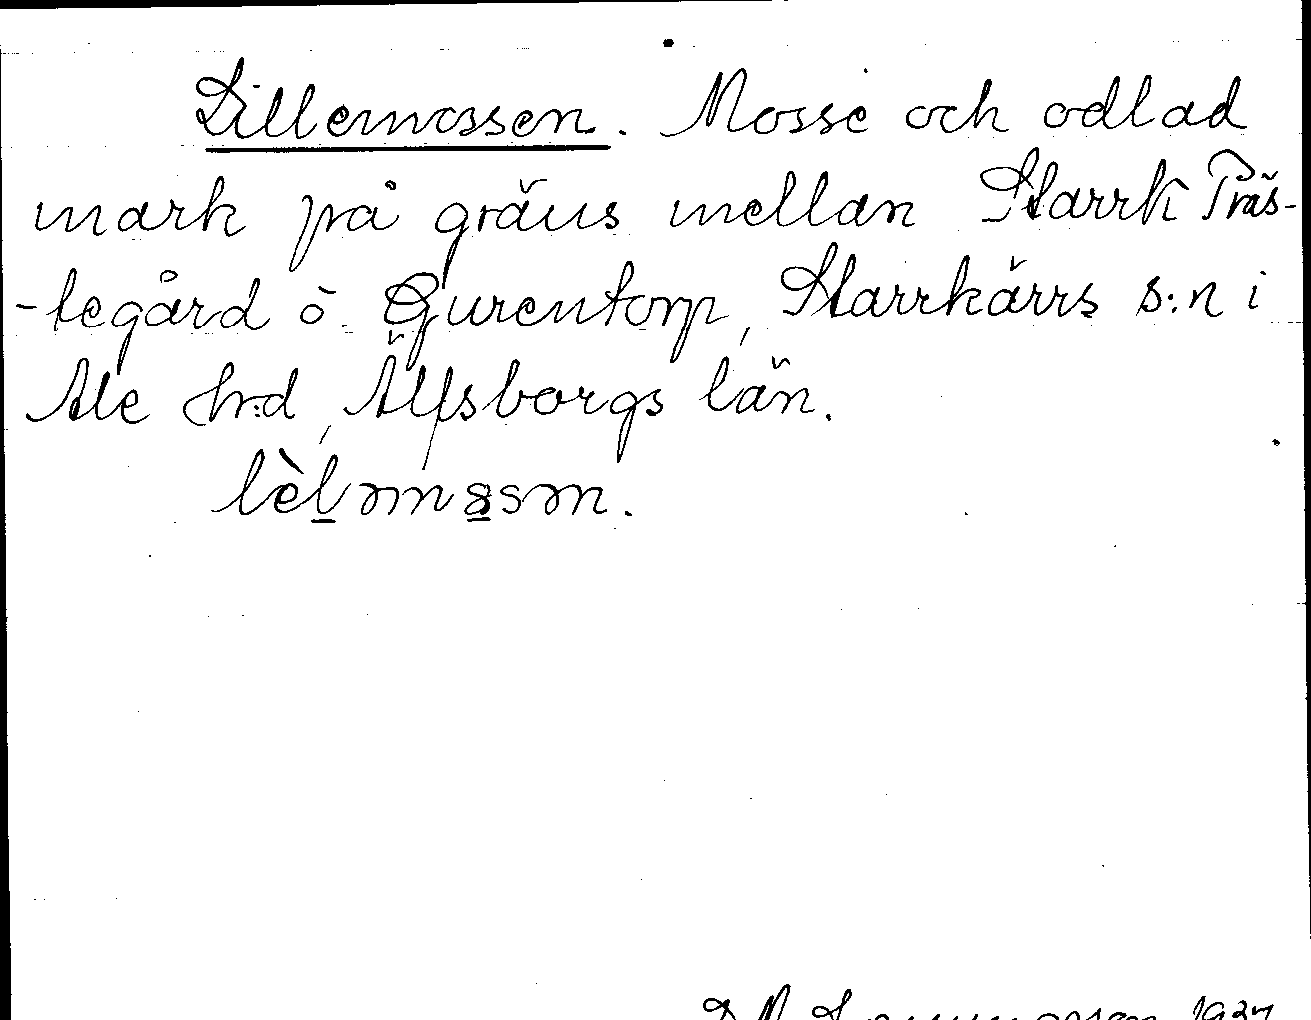 Lillemossen. Mosse och odlad
mark på gräns mellan Starrk Präs-
-tegård o Gurentorp, Starrkärrs s:n i
Ale h:d, Älfsborgs län.
lèlmassn.
1927